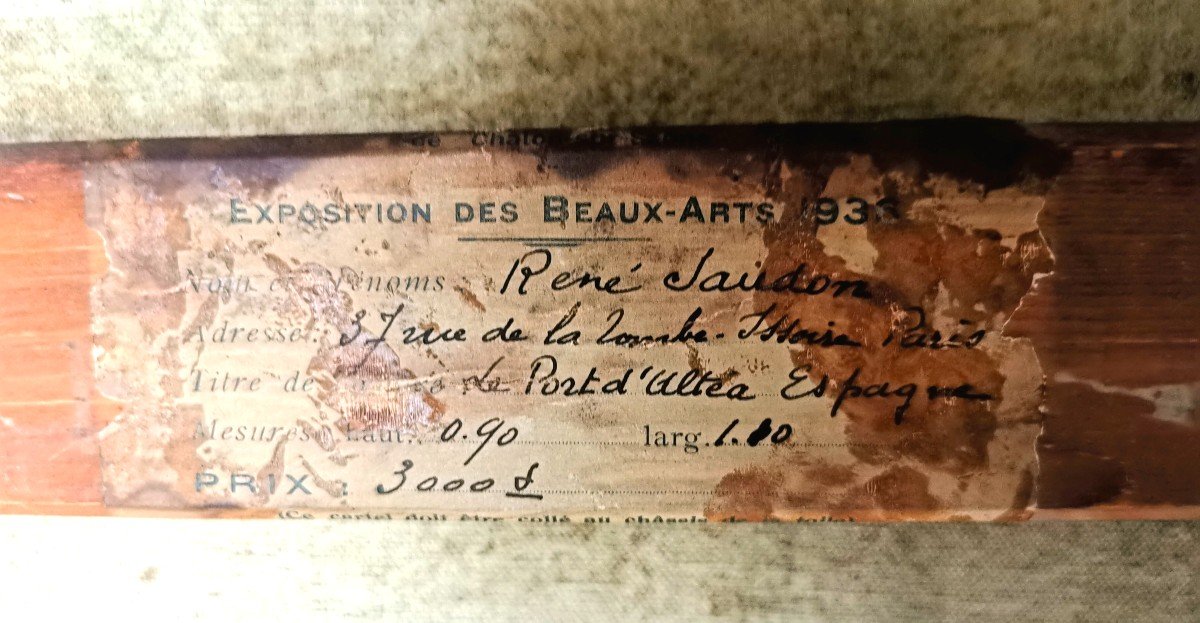 EXPOSITION DES BEAUX-ARTS
Nom et Prénoms : René Jaudon
Adresse : 37 rue de la Tombe-Issoire Paris
Titre de le Port d'Altéa Espagne
Mesures Haut. 0.90 larg. 1.10
PRIX : 3000 f
(Ce cartel doit être collé au châssis de la toile)